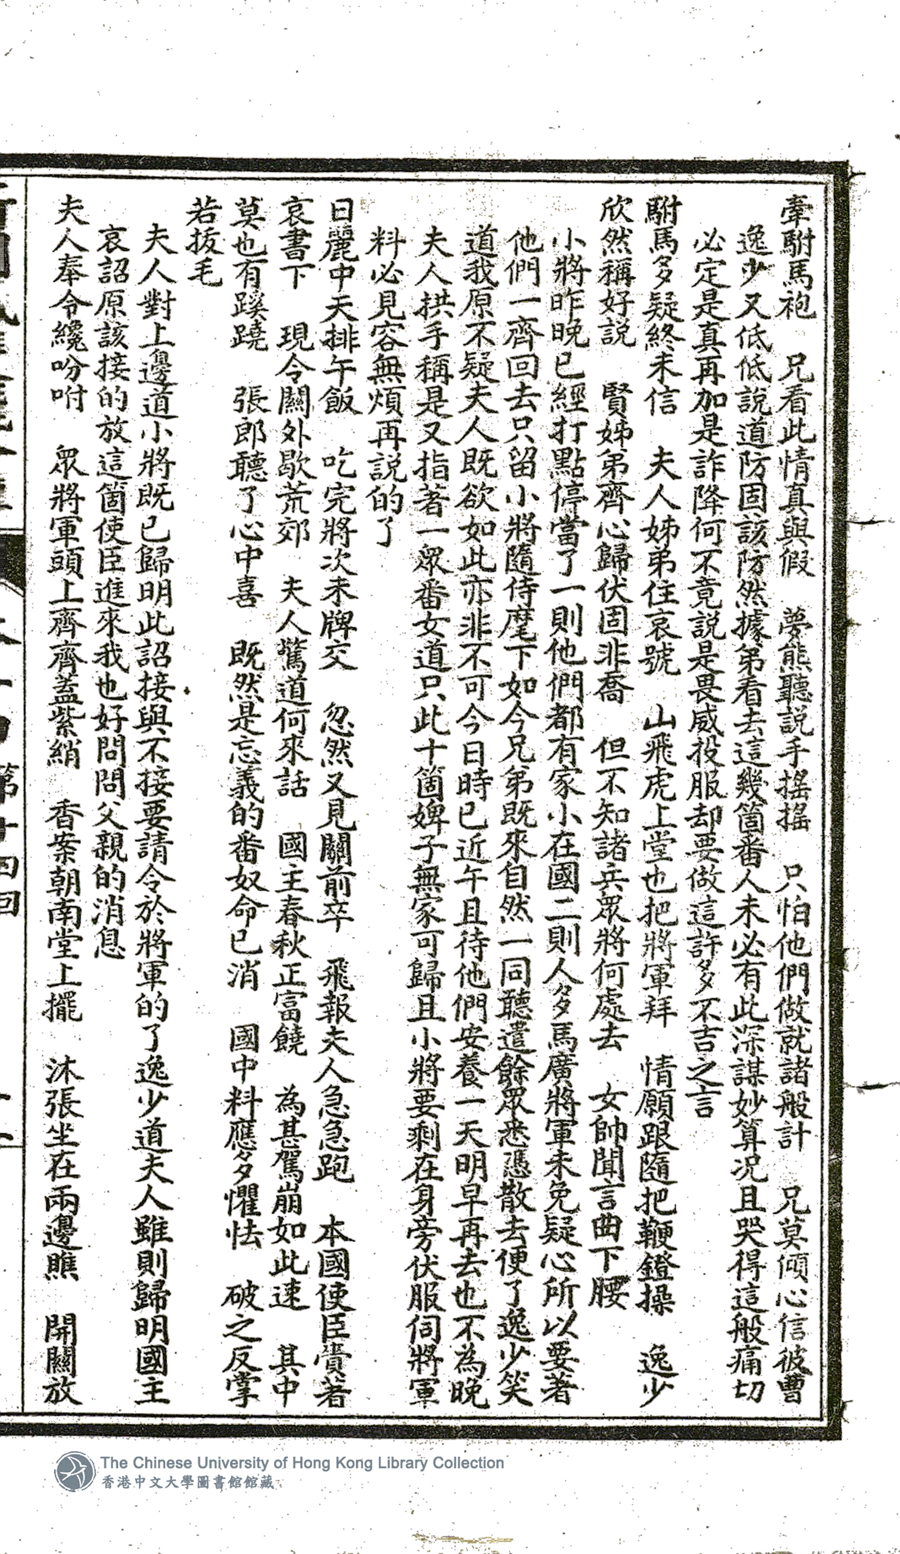 牽駙馬袍　兄看此情真與假　夢熊聽説手搖搖　只怕他們做就諸般計　兄莫傾心信彼曹
逸少又低低説道防固該防然據弟看去這幾箇番人未必有此深謀妙算况且哭得這般痛切
必定是真再加是詐降何不竟說是畏威投服却要做這許多不吉之言
駙馬多疑終未信　夫人姊弟住哀號　山飛虎上堂也把將軍拜　情願跟隨把鞭鐙操　逸少
欣然稱好説　賢姊弟齊心歸伏固非喬　但不知諸兵衆將何處去　女帥聞言曲下腰
小將昨晚已經打點停當了一則他們都有家小在國二則人多馬廣將軍未免疑心所以要著
他們一齊回去只留小將隨侍麾下如今兄弟既來自然一同聽遣餘衆悉憑散去便了逸少笑
道我原不疑夫人既欲如此亦非不可今日時已近午且待他們安養一天明早再去也不為晚
夫人拱手稱是又指著一衆番女道只此十箇婢子無家可歸且小將要剩在身旁伏服伺將軍
料必見容無煩再説的了
日麗中天排午飯　吃完將次未牌交　忽然又見關前卒　飛報夫人急急跑　本國使臣賫著
哀書下　現今關外歇荒郊　夫人驚道何來話　國王春秋正富饒　為甚駕崩如此速　其中
莫也有蹊蹺　張郎聽了心中喜　既然是忘義的番奴命已消　國中料應多懼怯　破之反掌
若拔毛
夫人對上邊道小將既已歸明此詔接與不接要請令於將軍的了逸少道夫人雖則歸明國王
哀詔原該接的放這箇使臣進來我也好問問父親的消息
夫人奉令纔吩咐　衆將軍頭上齊齊蓋紫綃　香案朝南堂上擺　沐張坐在兩邊瞧　開關放
第十四回
The Chinese University of Hong Kong Library Collection
香港中文大學圖書館館藏